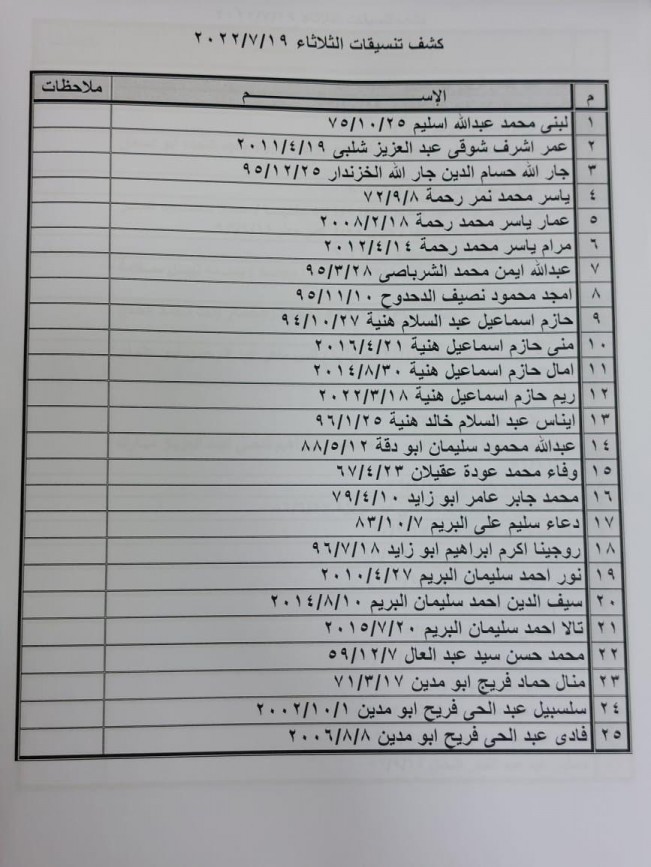 كشف تنسيقات الثلاثاء ٢٠٢٢/٧/١٩
م الإســـــــــــــــم ملاحظات
١ لبنى محمد عبدالله اسليم ٧٥/١٠/٢٥
٢ عمر اشرف شوقى عبد العزيز شلبى ٢٠١١/٤/١٩
٣ جار الله حسام الدين جار الله الخزندار ٩٥/١٢/٢٥
٤ ياسر محمد نمر رحمة ٧٢/٩/٨
٥ عمار ياسر محمد رحمة ٢٠٠٨/٢/١٨
٦ مرام ياسر محمد رحمة ٢٠١٢/٤/١٤
٧ عبدالله ايمن محمد الشرباصى ٩٥/٣/٢٨
٨ امجد محمود نصيف الدحدوح ٩٥/١١/١٠
٩ حازم اسماعيل عبد السلام هنية ٩٤/١٠/٢٧
١٠ منى حازم اسماعيل هنية ٢٠١٦/٤/٢١
١١ امال حازم اسماعيل هنية ٢٠١٤/٨/٣٠
١٢ ريم حازم اسماعيل هنية ٢٠٢٢/٣/١٨
١٣ ايناس عبد السلام خالد هنية ٩٦/١/٢٥
١٤ عبدالله محمود سليمان ابو دقة ٨٨/٥/١٢
١٥ وفاء محمد عودة عقيلان ٦٧/٤/٢٣
١٦ محمد جابر عامر ابو زايد ٧٩/٤/١٠
١٧ دعاء سليم على البريم ٨٣/١٠/٧
١٨ روجينا اكرم ابراهيم ابو زايد ٩٦/٧/١٨
١٩ نور احمد سليمان البريم ٢٠١٠/٤/٢٧
٢٠ سيف الدين احمد سليمان البريم ٢٠١٤/٨/١٠
٢١ تالا احمد سليمان البريم ٢٠١٥/٧/٢٠
٢٢ محمد حسن سيد عبد العال ٥٩/١٢/٧
٢٣ منال حماد فريج ابو مدين ٧١/٣/١٧
٢٤ سلسبيل عبد الحى فريح ابو مدين ٢٠٠٢/١٠/١
٢٥ فادى عبد الحى فريح ابو مدين ٢٠٠٦/٨/٨